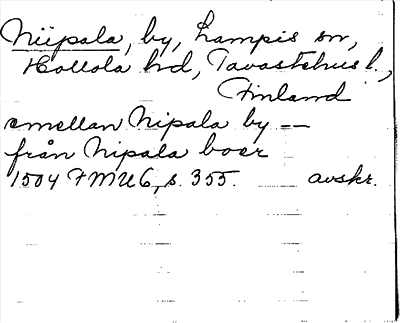 Niipala, by, Lampis sn,
Hollola hd, Tavastehus l.,
Finland
emellan Nipala by --
från Nipala boer
1504 FMU 6, s. 355. avskr.